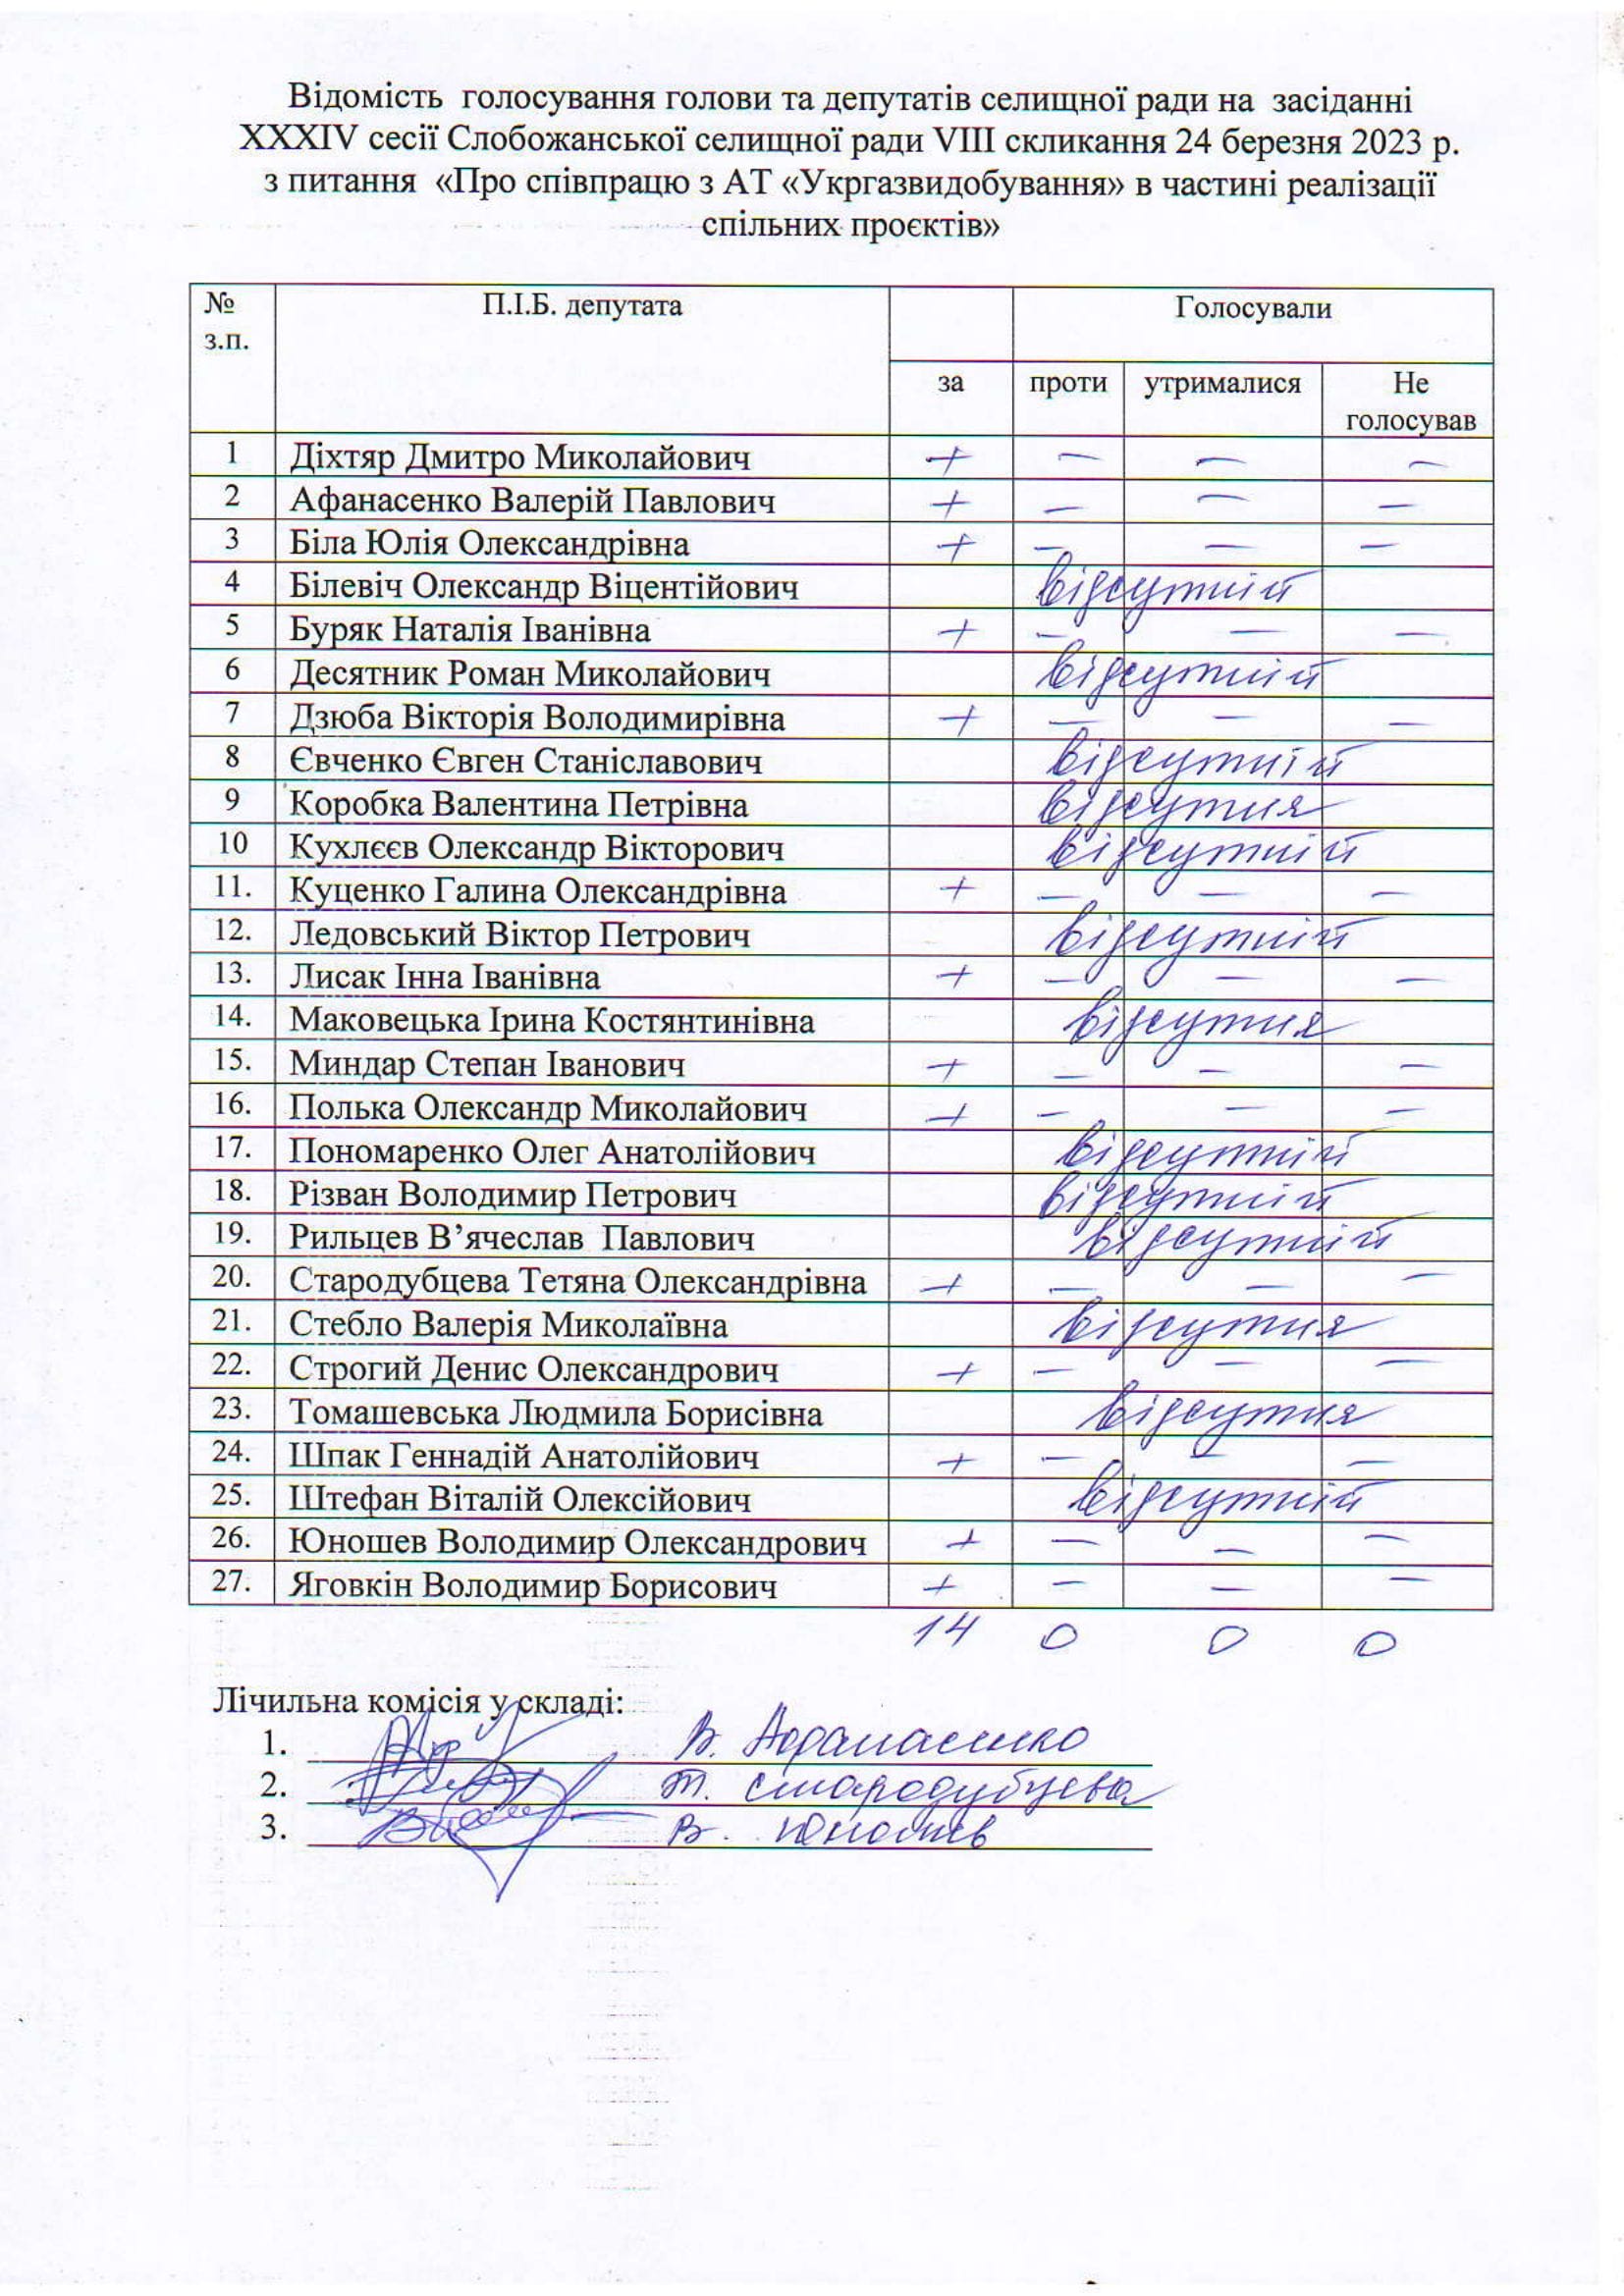 Відомість голосування голови та депутатів селищної ради на засіданні
XXXIV сесії Слобожанської селищної ради VIII скликання 24 березня 2023 р.
з питання «Про співпрацю з АТ «Укргазвидобування» в частині реалізації
спільних проєктів»
№ з.п. П.І.Б. депутата Голосували
за проти утрималися Не голосував
1 Діхтяр Дмитро Миколайович + – – –
2 Афанасенко Валерій Павлович + – – –
3 Біла Юлія Олександрівна + – – –
4 Білевіч Олександр Віцентійович відсутній
5 Буряк Наталія Іванівна + – – –
6 Десятник Роман Миколайович відсутній
7 Дзюба Вікторія Володимирівна + – – –
8 Євченко Євген Станіславович відсутній
9 Коробка Валентина Петрівна відсутня
10 Кухлєєв Олександр Вікторович відсутній
11. Куценко Галина Олександрівна + – – –
12. Ледовський Віктор Петрович відсутній
13. Лисак Інна Іванівна + – – –
14. Маковецька Ірина Костянтинівна відсутня
15. Миндар Степан Іванович + – – –
16. Полька Олександр Миколайович + – – –
17. Пономаренко Олег Анатолійович відсутній
18. Різван Володимир Петрович відсутній
19. Рильцев В’ячеслав Павлович відсутній
20. Стародубцева Тетяна Олександрівна + – – –
21. Стебло Валерія Миколаївна відсутня
22. Строгий Денис Олександрович + – – –
23. Томашевська Людмила Борисівна відсутня
24. Шпак Геннадій Анатолійович + – – –
25. Штефан Віталій Олексійович відсутній
26. Юношев Володимир Олександрович + – – –
27. Яговкін Володимир Борисович + – – –
14 0 0 0
Лічильна комісія у складі:
1. В. Афанасенко
2. Т. Стародубцева
3. В. Юношев